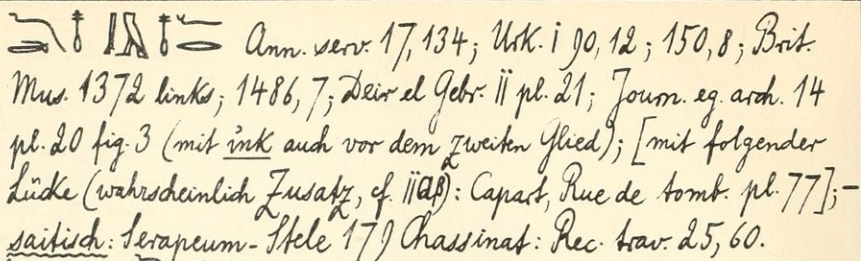 Ann. serv. 17, 134; Urk. I 90, 12; 150, 8; Brit.
Mus. 1372 links; 1486, 7; Deir el Gebr. II pl. 21; Journ. eg. arch. 14
pl. 20 fig. 3 (mit ỉnk auch vor dem zweiten Glied); [mit folgender
Lücke (wahrscheinlich Zusatz, cf. II aβ): Capart, Rue de tomb. pl. 77]; –
saitisch: Serapeum-Stele 179 Chassinat: Rec. trav. 25, 60.